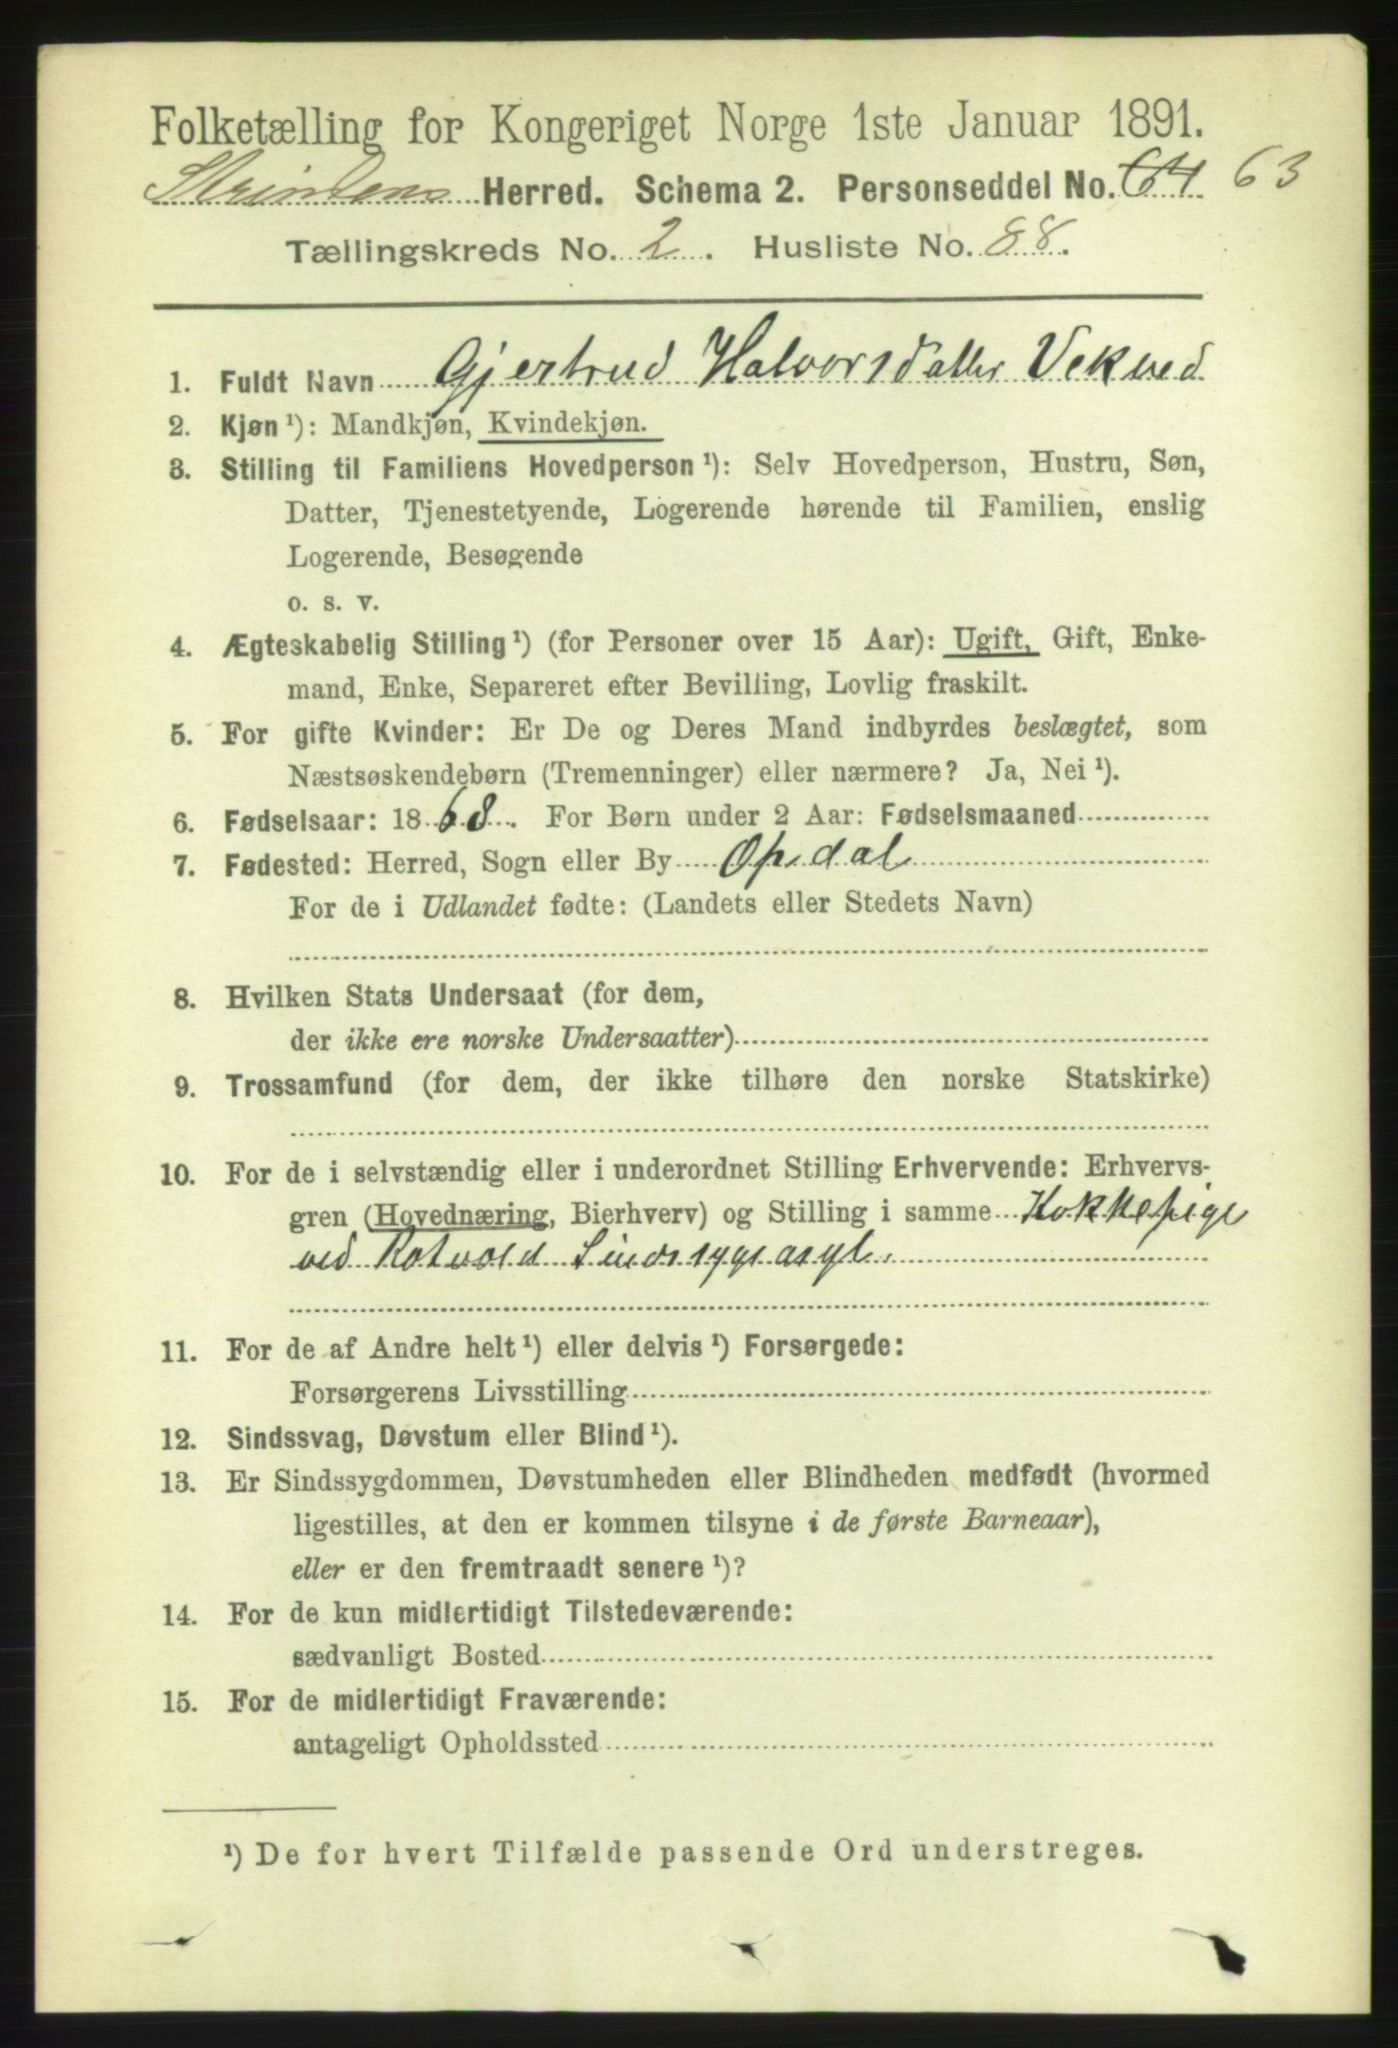 Folketælling for Kongeriget Norge 1ste Januar 1891.
Strindens Herred. Schema 2. Personseddel No. 64 63
Tællingskreds No. 2. Husliste No. 88.
1. Fuldt Navn Gjertrud Halvorsdatter Vekved
2. Kjøn¹): Mandkjøn, Kvindekjøn.
3. Stilling til Familiens Hovedperson¹): Selv Hovedperson, Hustru, Søn,
Datter, Tjenestetyende, Logerende hørende til Familien, enslig
Logerende, Besøgende
o. s. v.
4. Ægteskabelig Stilling¹) (for Personer over 15 Aar): Ugift, Gift, Enke-
mand, Enke, Separeret efter Bevilling, Lovlig fraskilt.
5. For gifte Kvinder: Er De og Deres Mand indbyrdes beslægtet, som
Næstsøskendebørn (Tremenninger) eller nærmere? Ja, Nei¹).
6. Fødselsaar: 1868. For Børn under 2 Aar: Fødselsmaaned
7. Fødested: Herred, Sogn eller By Opdal
For de i Udlandet fødte: (Landets eller Stedets Navn)
8. Hvilken Stats Undersaat (for dem,
der ikke ere norske Undersaatter)
9. Trossamfund (for dem, der ikke tilhøre den norske Statskirke)
10. For de i selvstændig eller i underordnet Stilling Erhvervende: Erhvervs-
gren (Hovednæring, Bierhverv) og Stilling i samme Kokkepige
ved Rotvold Sindssygeasyl.
11. For de af Andre helt¹) eller delvis¹) Forsørgede:
Forsørgerens Livsstilling
12. Sindssvag, Døvstum eller Blind¹).
13. Er Sindssygdommen, Døvstumheden eller Blindheden medfødt (hvormed
ligestilles, at den er kommen tilsyne i de første Barneaar),
eller er den fremtraadt senere¹)?
14. For de kun midlertidigt Tilstedeværende:
sædvanligt Bosted
15. For de midlertidigt Fraværende:
antageligt Opholdssted
¹) De for hvert Tilfælde passende Ord understreges.